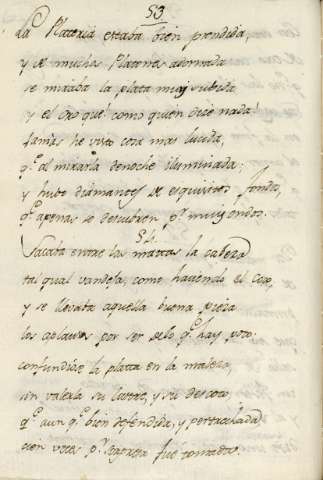 53.
La Plateria estaba bien prendida,
y de muchos Platones adornada
se miraba la plata muy subida
y el oro qué como quien dice nada!
Jamas he visto cosa mas lucida,
q.e al mirarla de noche iluminada;
y hubo diamantes de esquisitos fondos,
q.e apenas se descubren p.r muy ondos.
54.
Sacaba entre las matas la cabeza
tal qual vandeja, como haciendo el cox,
y se llevaba aquella buena pieza
los aplausos por ser de lo q.e hay poco:
confundiose la platta en la maleza,
sin valerla su lustre, y su descoco,
q.e aun q.e bien defendida, y pertrechada
cien veces p.r sorpresa fué tomada.